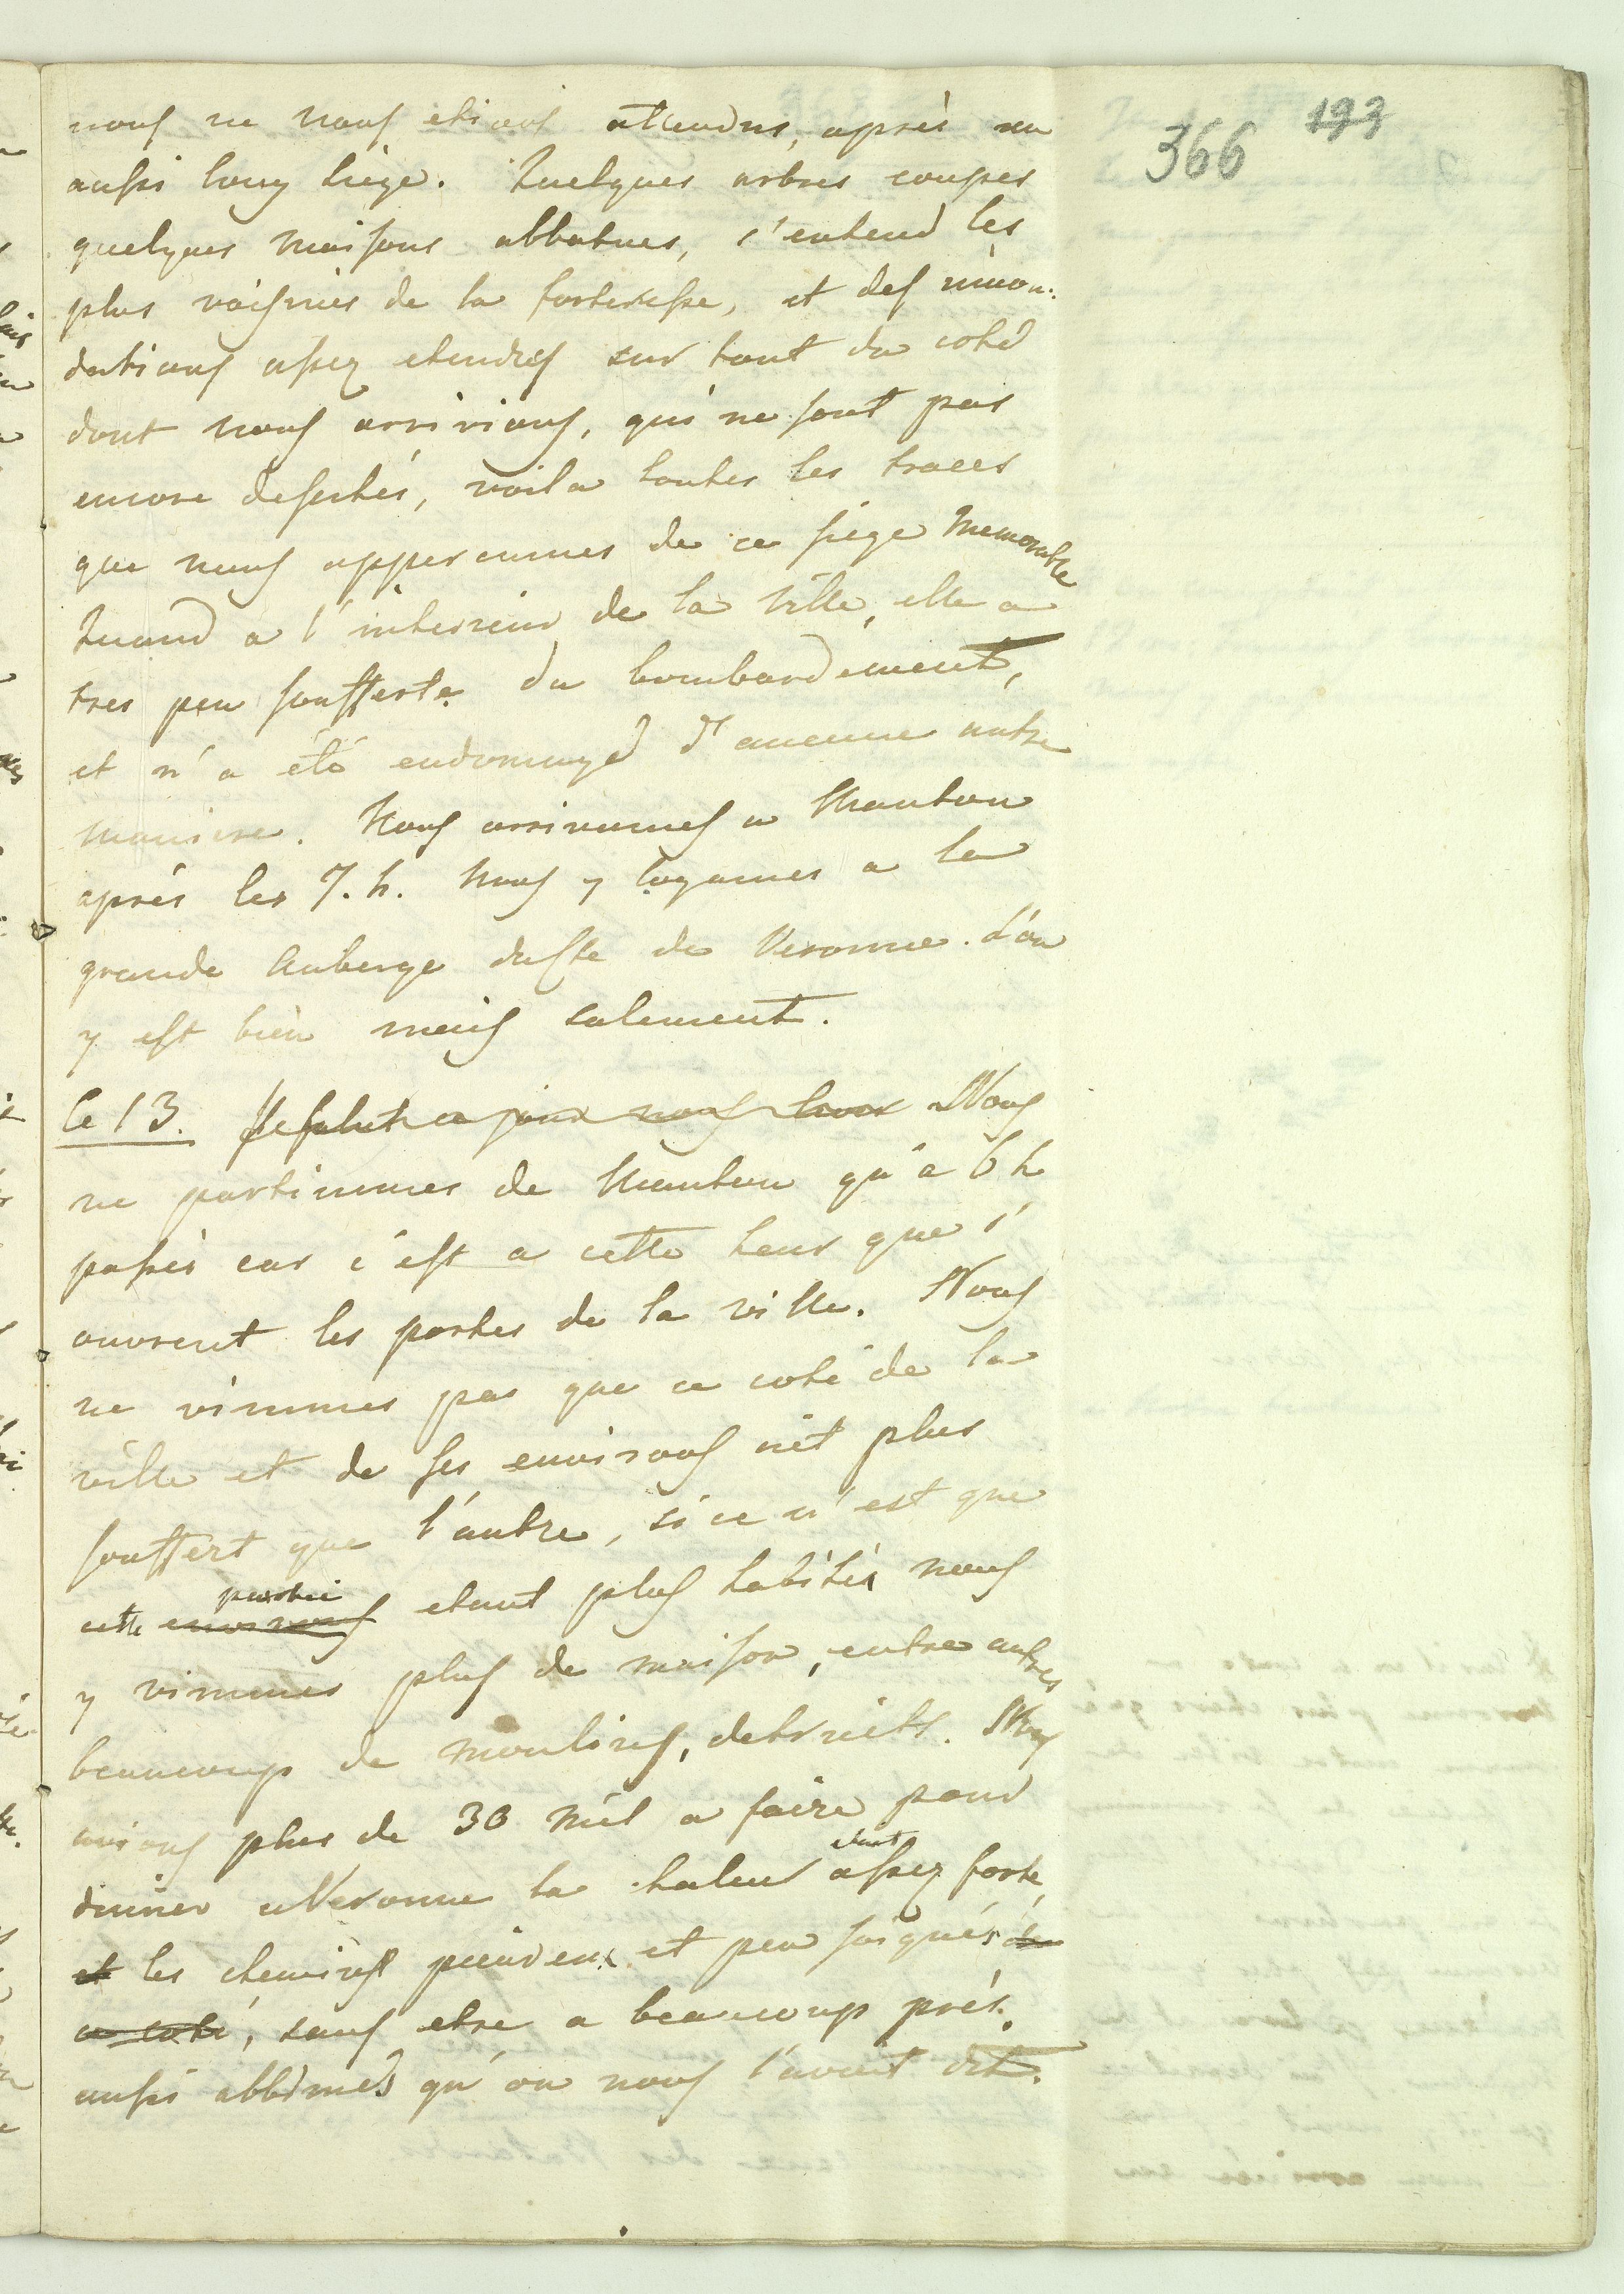 366 193
nous ne nous etions attendus, après un
aussi long siege. Quelques arbres coupes
quelques maisons abbatues, s'entend les
plus voisines de la forteresse, et des innon:
dations assez etendues sur tout du coté
dont nous arrivions, qui ne sont pas
encore desechés, voila toutes les traces
que nous apperçumes de ce siege memorable
Quand a l'interieur de la ville, elle a
tres peu soufferte du bombardement,
et n'a été endommagé d'aucune autre
maniere. Nous arrivames a Mantoue
après les 7. h. Nous y logames a la
grande Auberge dulte de Veronne. L'on
y est bien mais salement.
le 13. Il falut ce jour nous lever Nous
ne partimmes de Mantoue qu'a 6 h
passés car c'est a cette heur que s'
ouvrent les portes de la ville. Nous
ne vimmes pas que ce coté de la
ville et de ses environs eût plus
souffert que l'autre, si ce n'est que
cette environs partie etant plus habitée nous
y vimmes plus de maison, entre autres
beaucoup de moulins, detruits. Nous
avions plus de 30 mil a faire pour
dinner a Veronne la chaleur etant assez forte,
et les chemins poudreux et peu soignés de
ce coté, sans etre a beaucoup prés
aussi abbimés qu'on nous l'avoit dit.